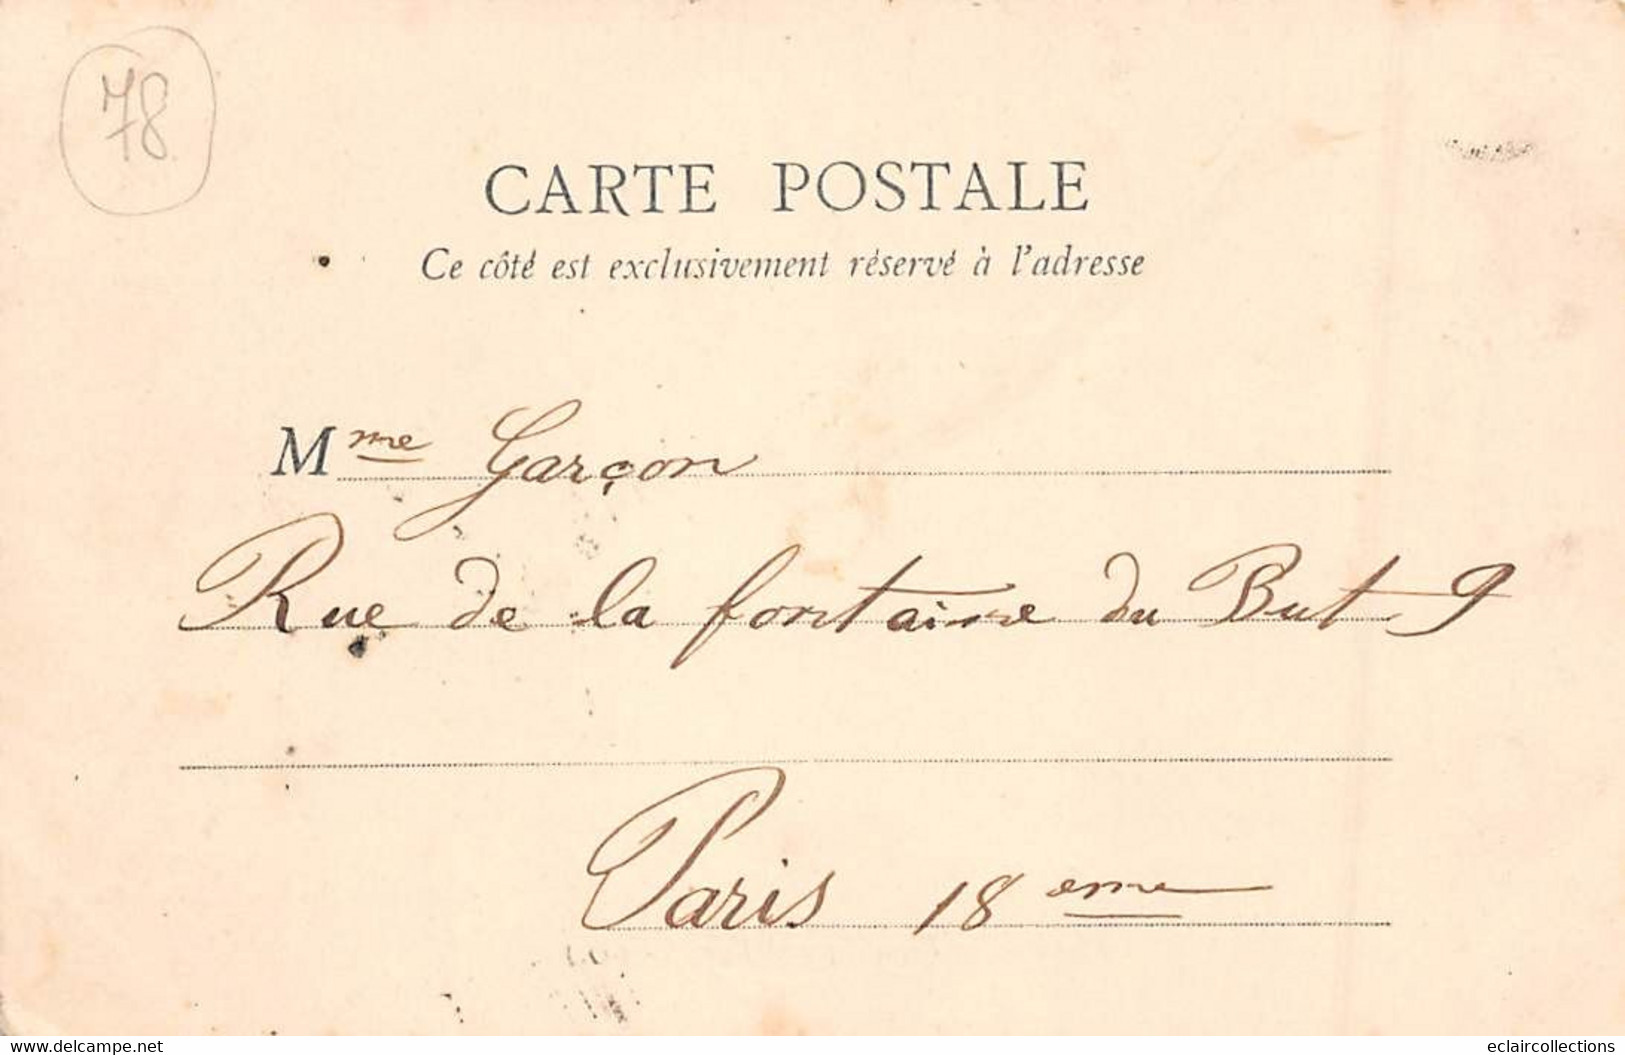 78
CARTE POSTALE
Ce côté est exclusivement réservé à l'adresse
Mme Garçon
Rue de la fontaine du But 9
Paris 18eme
www.delcampe.net
eclaircollections